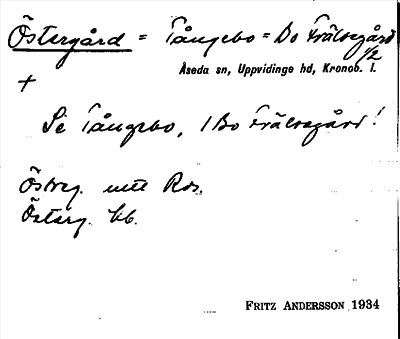 Östergård = Tångebo = Do Frälsegård 1/2
Åseda sn, Uppvidinge hd, Kronob. l.
+
Se Tångebo, 1 Bo Frälsegård!
Östreg. utt Ros.
Österg. bb.
FRITZ ANDERSSON 1934